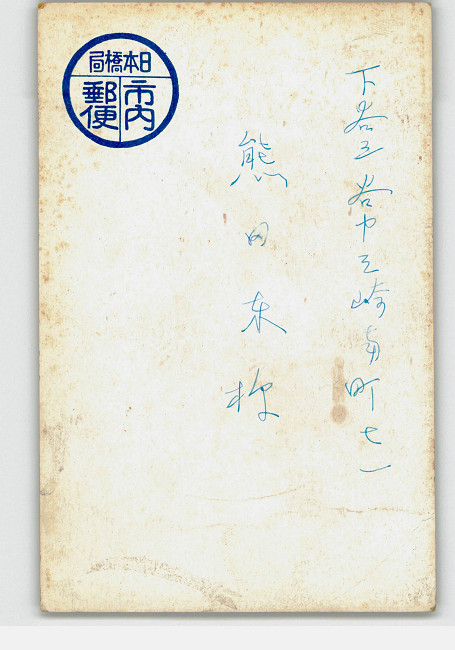 日本橋局
市内
郵便
下谷区谷中三崎南町七一
熊田来様